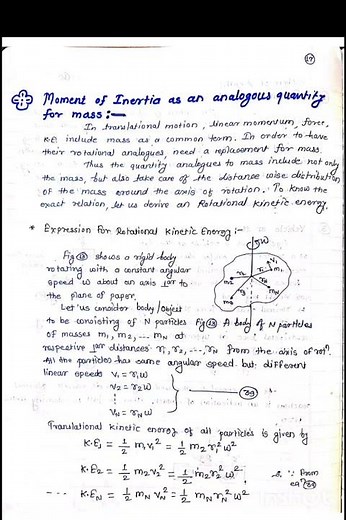 17
Moment of Inertia as an analogous quantity
for mass :-
In translational motion, linear momentum, force,
K.E include mass as a common term. In order to have
their rotational analogues, need a replacement for mass.
Thus the quantity analogues to mass include not only
the mass, but also take care of the distance wise distribution
of the mass around the axis of rotation. To know the
exact relation, let us derive an Rotational kinetic energy.
* Expression for Rotational Kinetic Energy :-
Fig shows a rigid body
rotating with a constant angular
speed ω about an axis ⊥ar to
the plane of paper.
Let us consider body/object
to be consisting of N particles
Fig A body of N particles
of masses m₁, m₂, ---, mN at
respective ⊥ar distances r₁, r₂, ---, rN from the axis of rotⁿ.
All the particles has same angular speed but different
linear speeds v₁ = r₁ω
v₂ = r₂ω
⋮
vN = rNω
Translational kinetic energy of all particles is given by
K.E₁ = 1/2 m₁v₁² = 1/2 m₁r₁²ω²
K.E₂ = 1/2 m₂v₂² = 1/2 m₂r₂²ω²
∵ From
eqⁿ
---- K.EN = 1/2 mN vN² = 1/2 mN rN² ω²